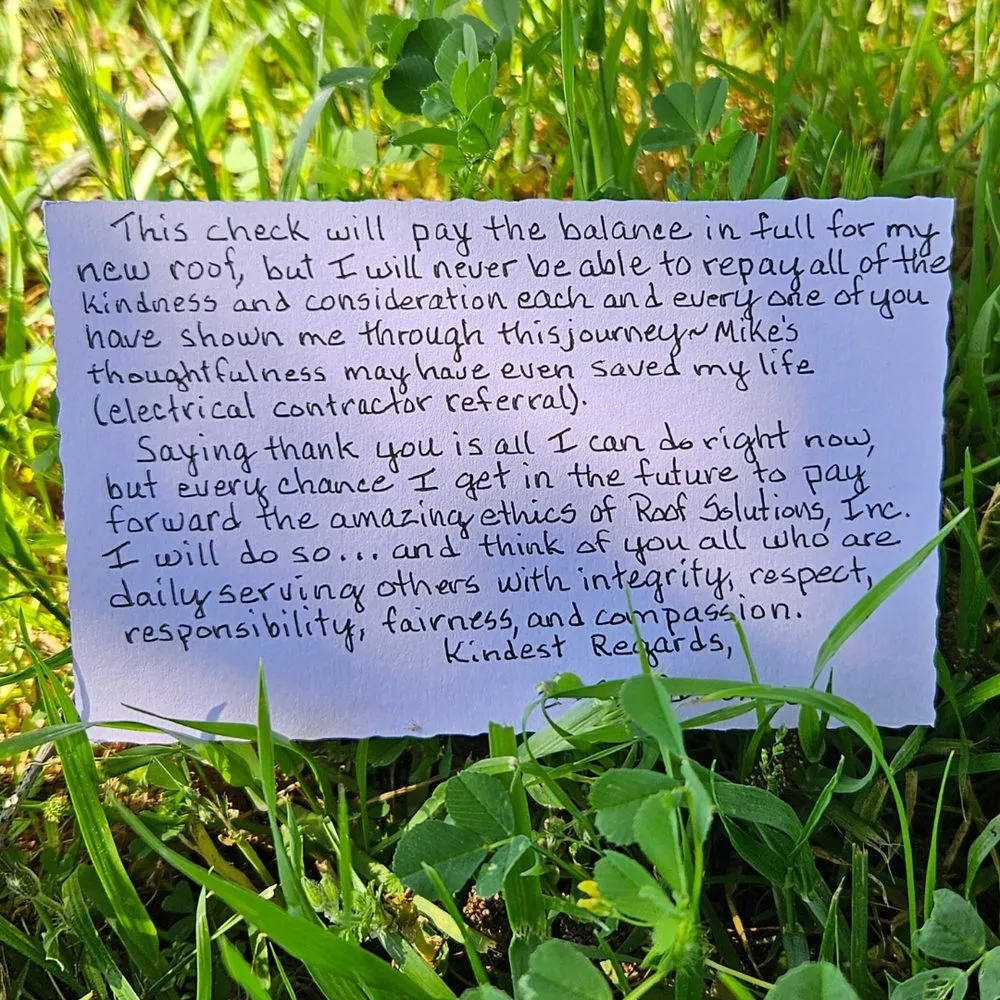 This check will pay the balance in full for my
new roof, but I will never be able to repay all of the
kindness and consideration each and every one of you
have shown me through this journey~ Mike's
thoughtfulness may have even saved my life
(electrical contractor referral).
Saying thank you is all I can do right now,
but every chance I get in the future to pay
forward the amazing ethics of Roof Solutions, Inc.
I will do so... and think of you all who are
daily serving others with integrity, respect,
responsibility, fairness, and compassion.
Kindest Regards,